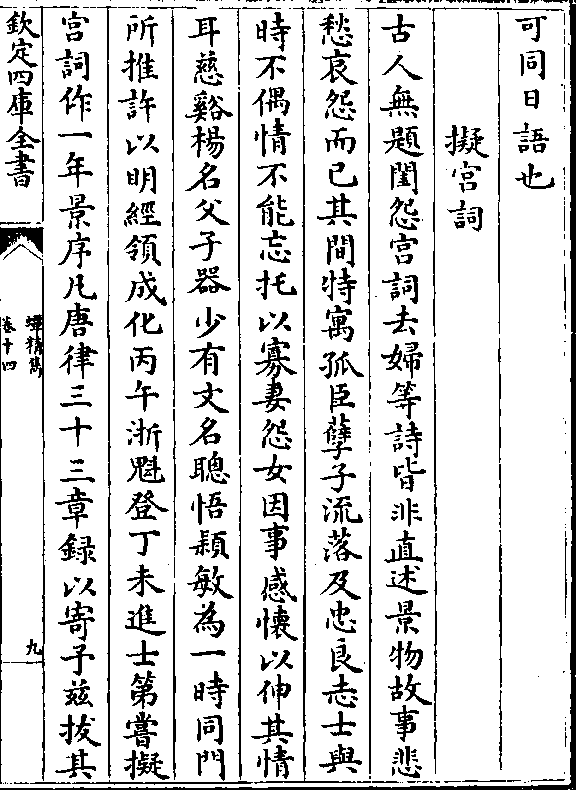 可同日語也
擬宮詞
古人無題閨怨宮詞去婦等詩皆非直述景物故事悲
愁哀怨而已其間特寓孤臣孽子流落及忠良志士與
時不偶情不能忘托以寡妻怨女因事感懷以伸其情
耳慈谿楊名父子器少有文名聰悟穎敏為一時同門
所推許以明經領成化丙午浙魁登丁未進士第嘗擬
宮詞作一年景序凡唐律三十三章録以寄予兹拔其
欽定四庫全書
蟫精雋
卷十四
九